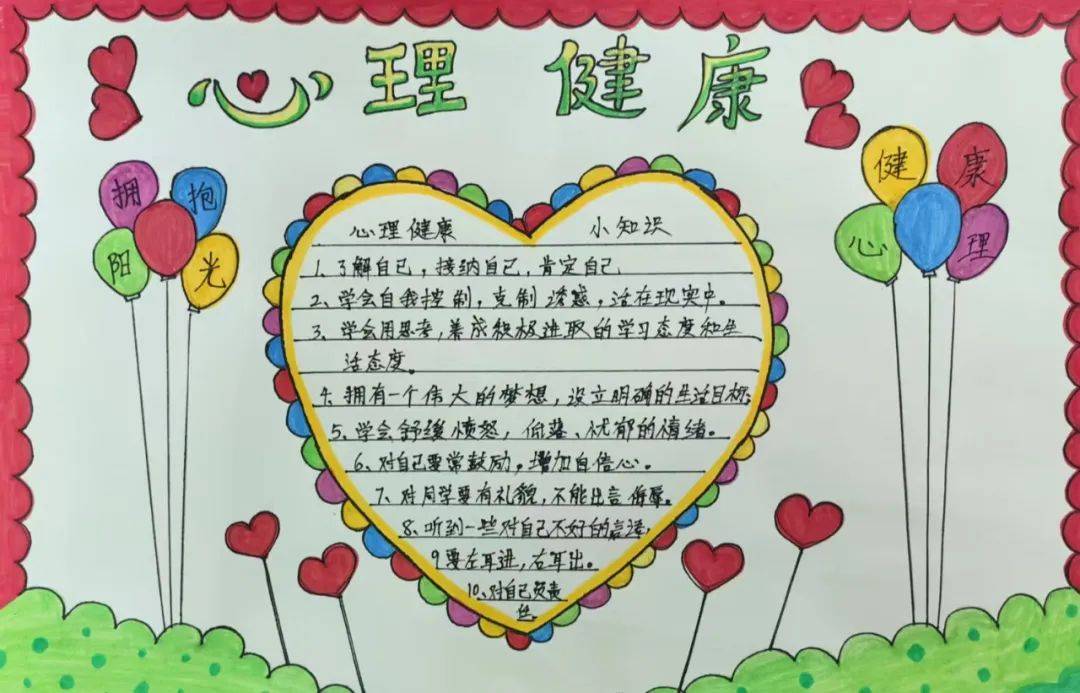 心理 健康
拥抱
阳光
健康
心理
心理健康 小知识
1、了解自己，接纳自己，肯定自己
2、学会自我控制，克制诱惑，活在现实中。
3、学会用思考，养成积极进取的学习态度和生
活态度。
4、拥有一个伟大的梦想，设立明确的生活目标；
5、学会舒缓愤怒，低落、忧郁的情绪。
6、对自己要常鼓励，增加自信心。
7、对同学要有礼貌，不能出言侮辱。
8、听到一些对自己不好的言语，
9要左耳进，右耳出。
10、对自己负责
任